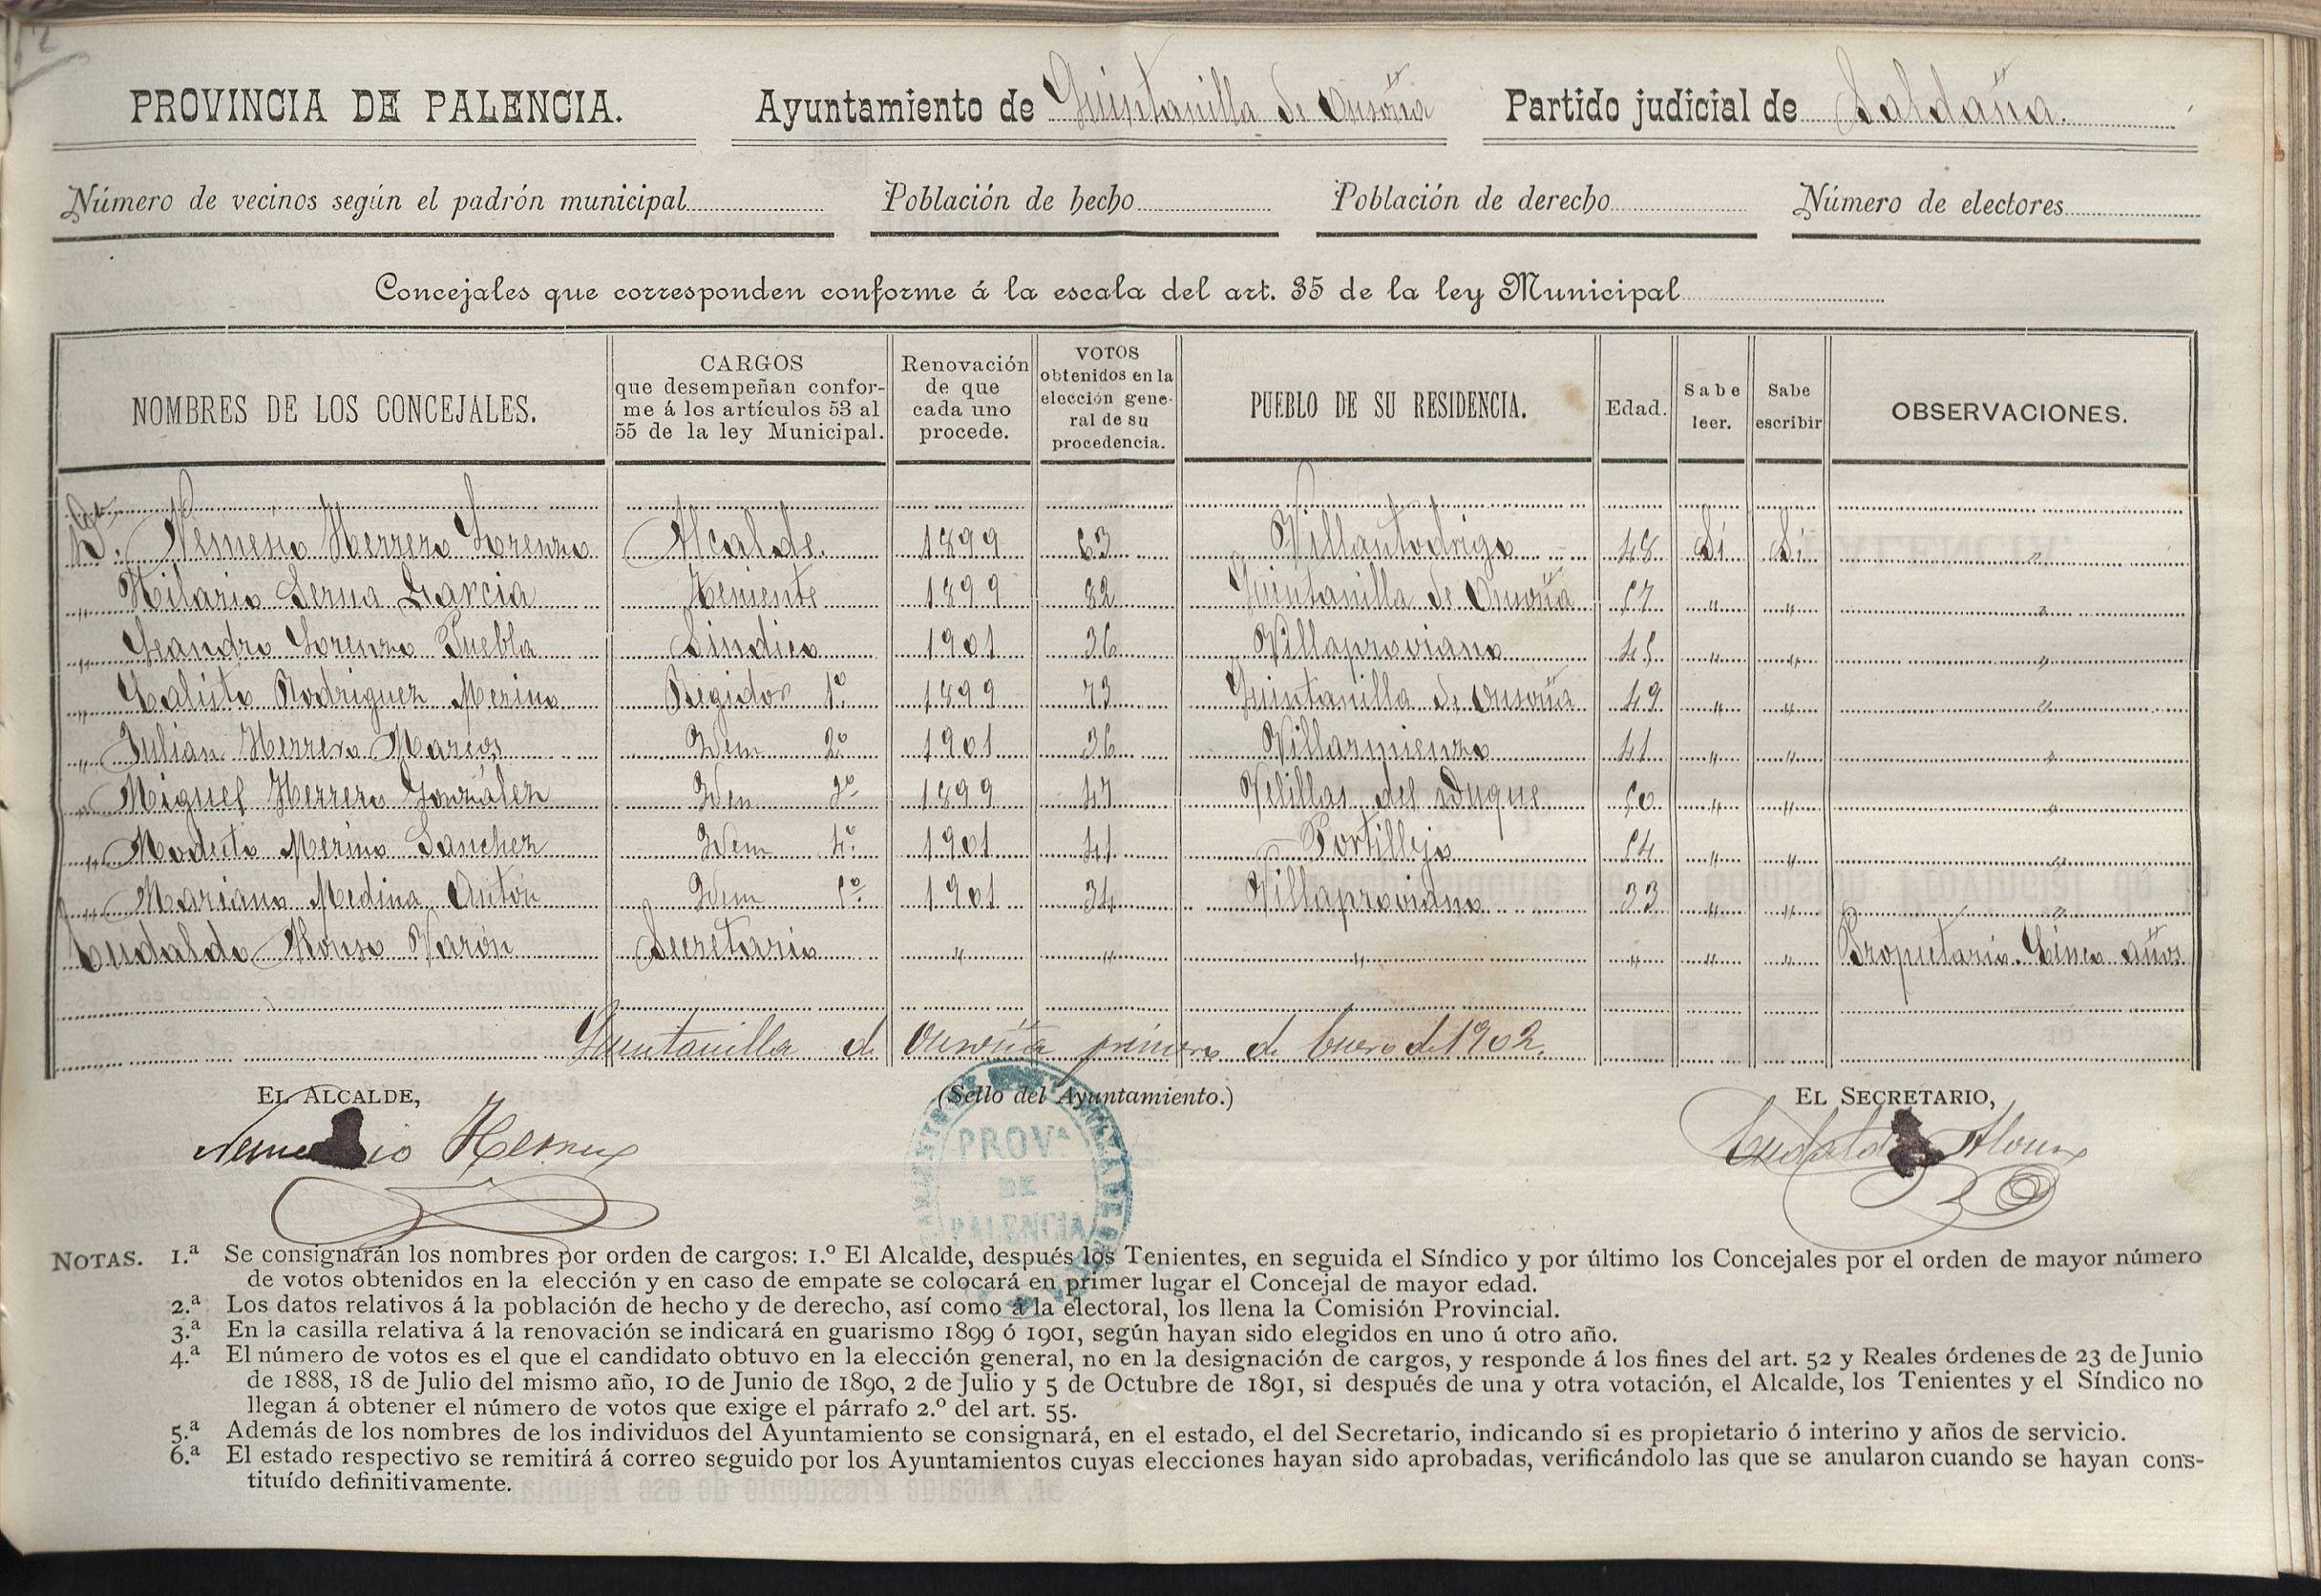 PROVINCIA DE PALENCIA. Ayuntamiento de Quintanilla de Onsoña Partido judicial de Saldaña.
Número de vecinos según el padrón municipal Población de hecho Población de derecho Número de electores
Concejales que corresponden conforme á la escala del art. 35 de la ley Municipal
NOMBRES DE LOS CONCEJALES. CARGOS que desempeñan confor-me á los artículos 53 al 55 de la ley Municipal. Renovación de que cada uno procede. VOTOS obtenidos en la elección gene-ral de su procedencia. PUEBLO DE SU RESIDENCIA. Edad. Sabe leer. Sabe escribir OBSERVACIONES.
D. Nemesio Herrero Lorenzo Alcalde. 1899 63 Villantodrigo 48 Si Si "
" Hilario Serna Garcia Teniente 1899 82 Quintanilla de Onsoña 57 " " "
" Leandro Lorenzo Puebla Sindico 1901 36 Villaproviano 45 " " "
" Calisto Rodriguez Merino Regidor 1º 1899 73 Quintanilla de Onsoña 49 " " "
" Julian Herrero Marcos Idem 2º 1901 36 Villarmienzo 41 " " "
" Miguel Herrero González Idem 3º 1899 47 Velillas del Duque 50 " " "
" Modesto Merino Sanchez Idem 4º 1901 41 Portillejo 54 " " "
" Mariano Medina Antón Idem 5º 1901 34 Villaproviano 33 " " "
Eudaldo Alonso Varón Secretario " " " " " " Propietario. Cinco años
Quintanilla de Onsoña primero de Enero de 1902.
EL ALCALDE, (Sello del Ayuntamiento.) EL SECRETARIO,
Nemesio Herrero Eudaldo Alonso
PROVª
DE
PALENCIA
NOTAS. 1.ª Se consignarán los nombres por orden de cargos: 1.º El Alcalde, después los Tenientes, en seguida el Síndico y por último los Concejales por el orden de mayor número
de votos obtenidos en la elección y en caso de empate se colocará en primer lugar el Concejal de mayor edad.
2.ª Los datos relativos á la población de hecho y de derecho, así como á la electoral, los llena la Comisión Provincial.
3.ª En la casilla relativa á la renovación se indicará en guarismo 1899 ó 1901, según hayan sido elegidos en uno ú otro año.
4.ª El número de votos es el que el candidato obtuvo en la elección general, no en la designación de cargos, y responde á los fines del art. 52 y Reales órdenes de 23 de Junio
de 1888, 18 de Julio del mismo año, 10 de Junio de 1890, 2 de Julio y 5 de Octubre de 1891, si después de una y otra votación, el Alcalde, los Tenientes y el Síndico no
llegan á obtener el número de votos que exige el párrafo 2.º del art. 55.
5.ª Además de los nombres de los individuos del Ayuntamiento se consignará, en el estado, el del Secretario, indicando si es propietario ó interino y años de servicio.
6.ª El estado respectivo se remitirá á correo seguido por los Ayuntamientos cuyas elecciones hayan sido aprobadas, verificándolo las que se anularon cuando se hayan cons-
tituído definitivamente.